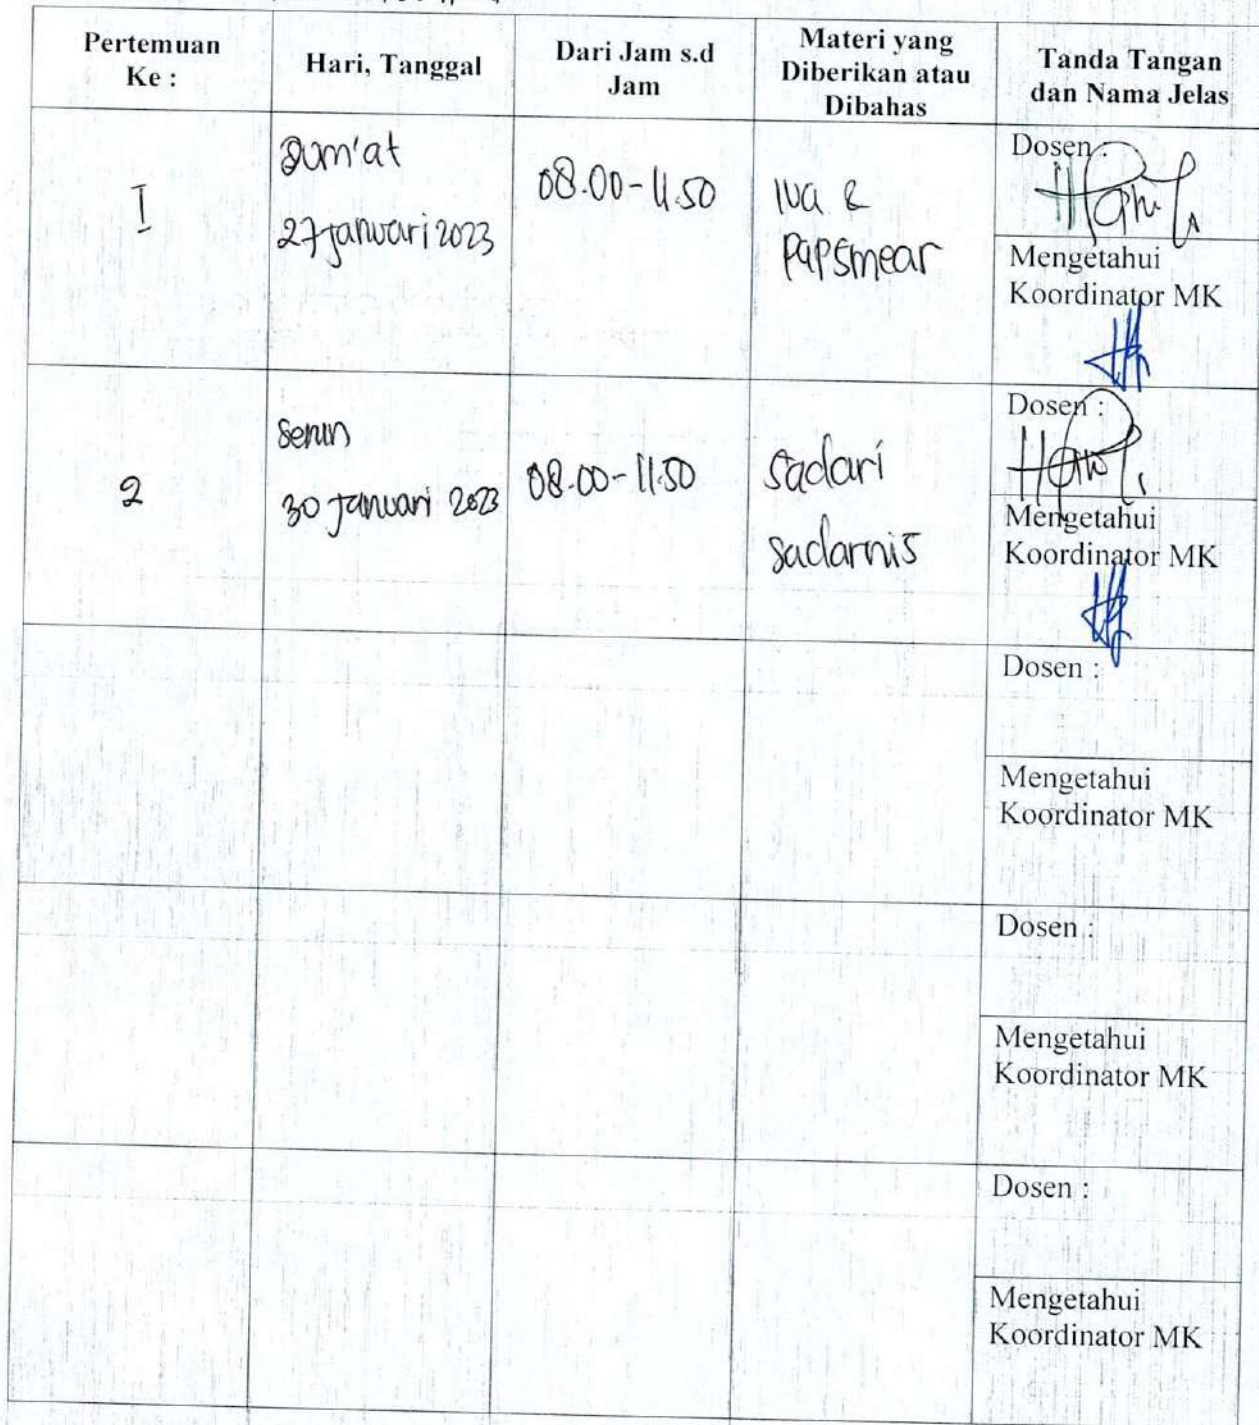 Pertemuan
Ke :
Hari, Tanggal
Dari Jam s.d
Jam
Materi yang
Diberikan atau
Dibahas
Tanda Tangan
dan Nama Jelas
I
Jum'at
27 januari 2023
08.00-11.50
IVA &
PAPSmear
Dosen :
Mengetahui
Koordinator MK
2
Senin
30 Januari 2023
08.00-11.50
Sadari
Sadarnis
Dosen :
Mengetahui
Koordinator MK
Dosen :
Mengetahui
Koordinator MK
Dosen :
Mengetahui
Koordinator MK
Dosen :
Mengetahui
Koordinator MK